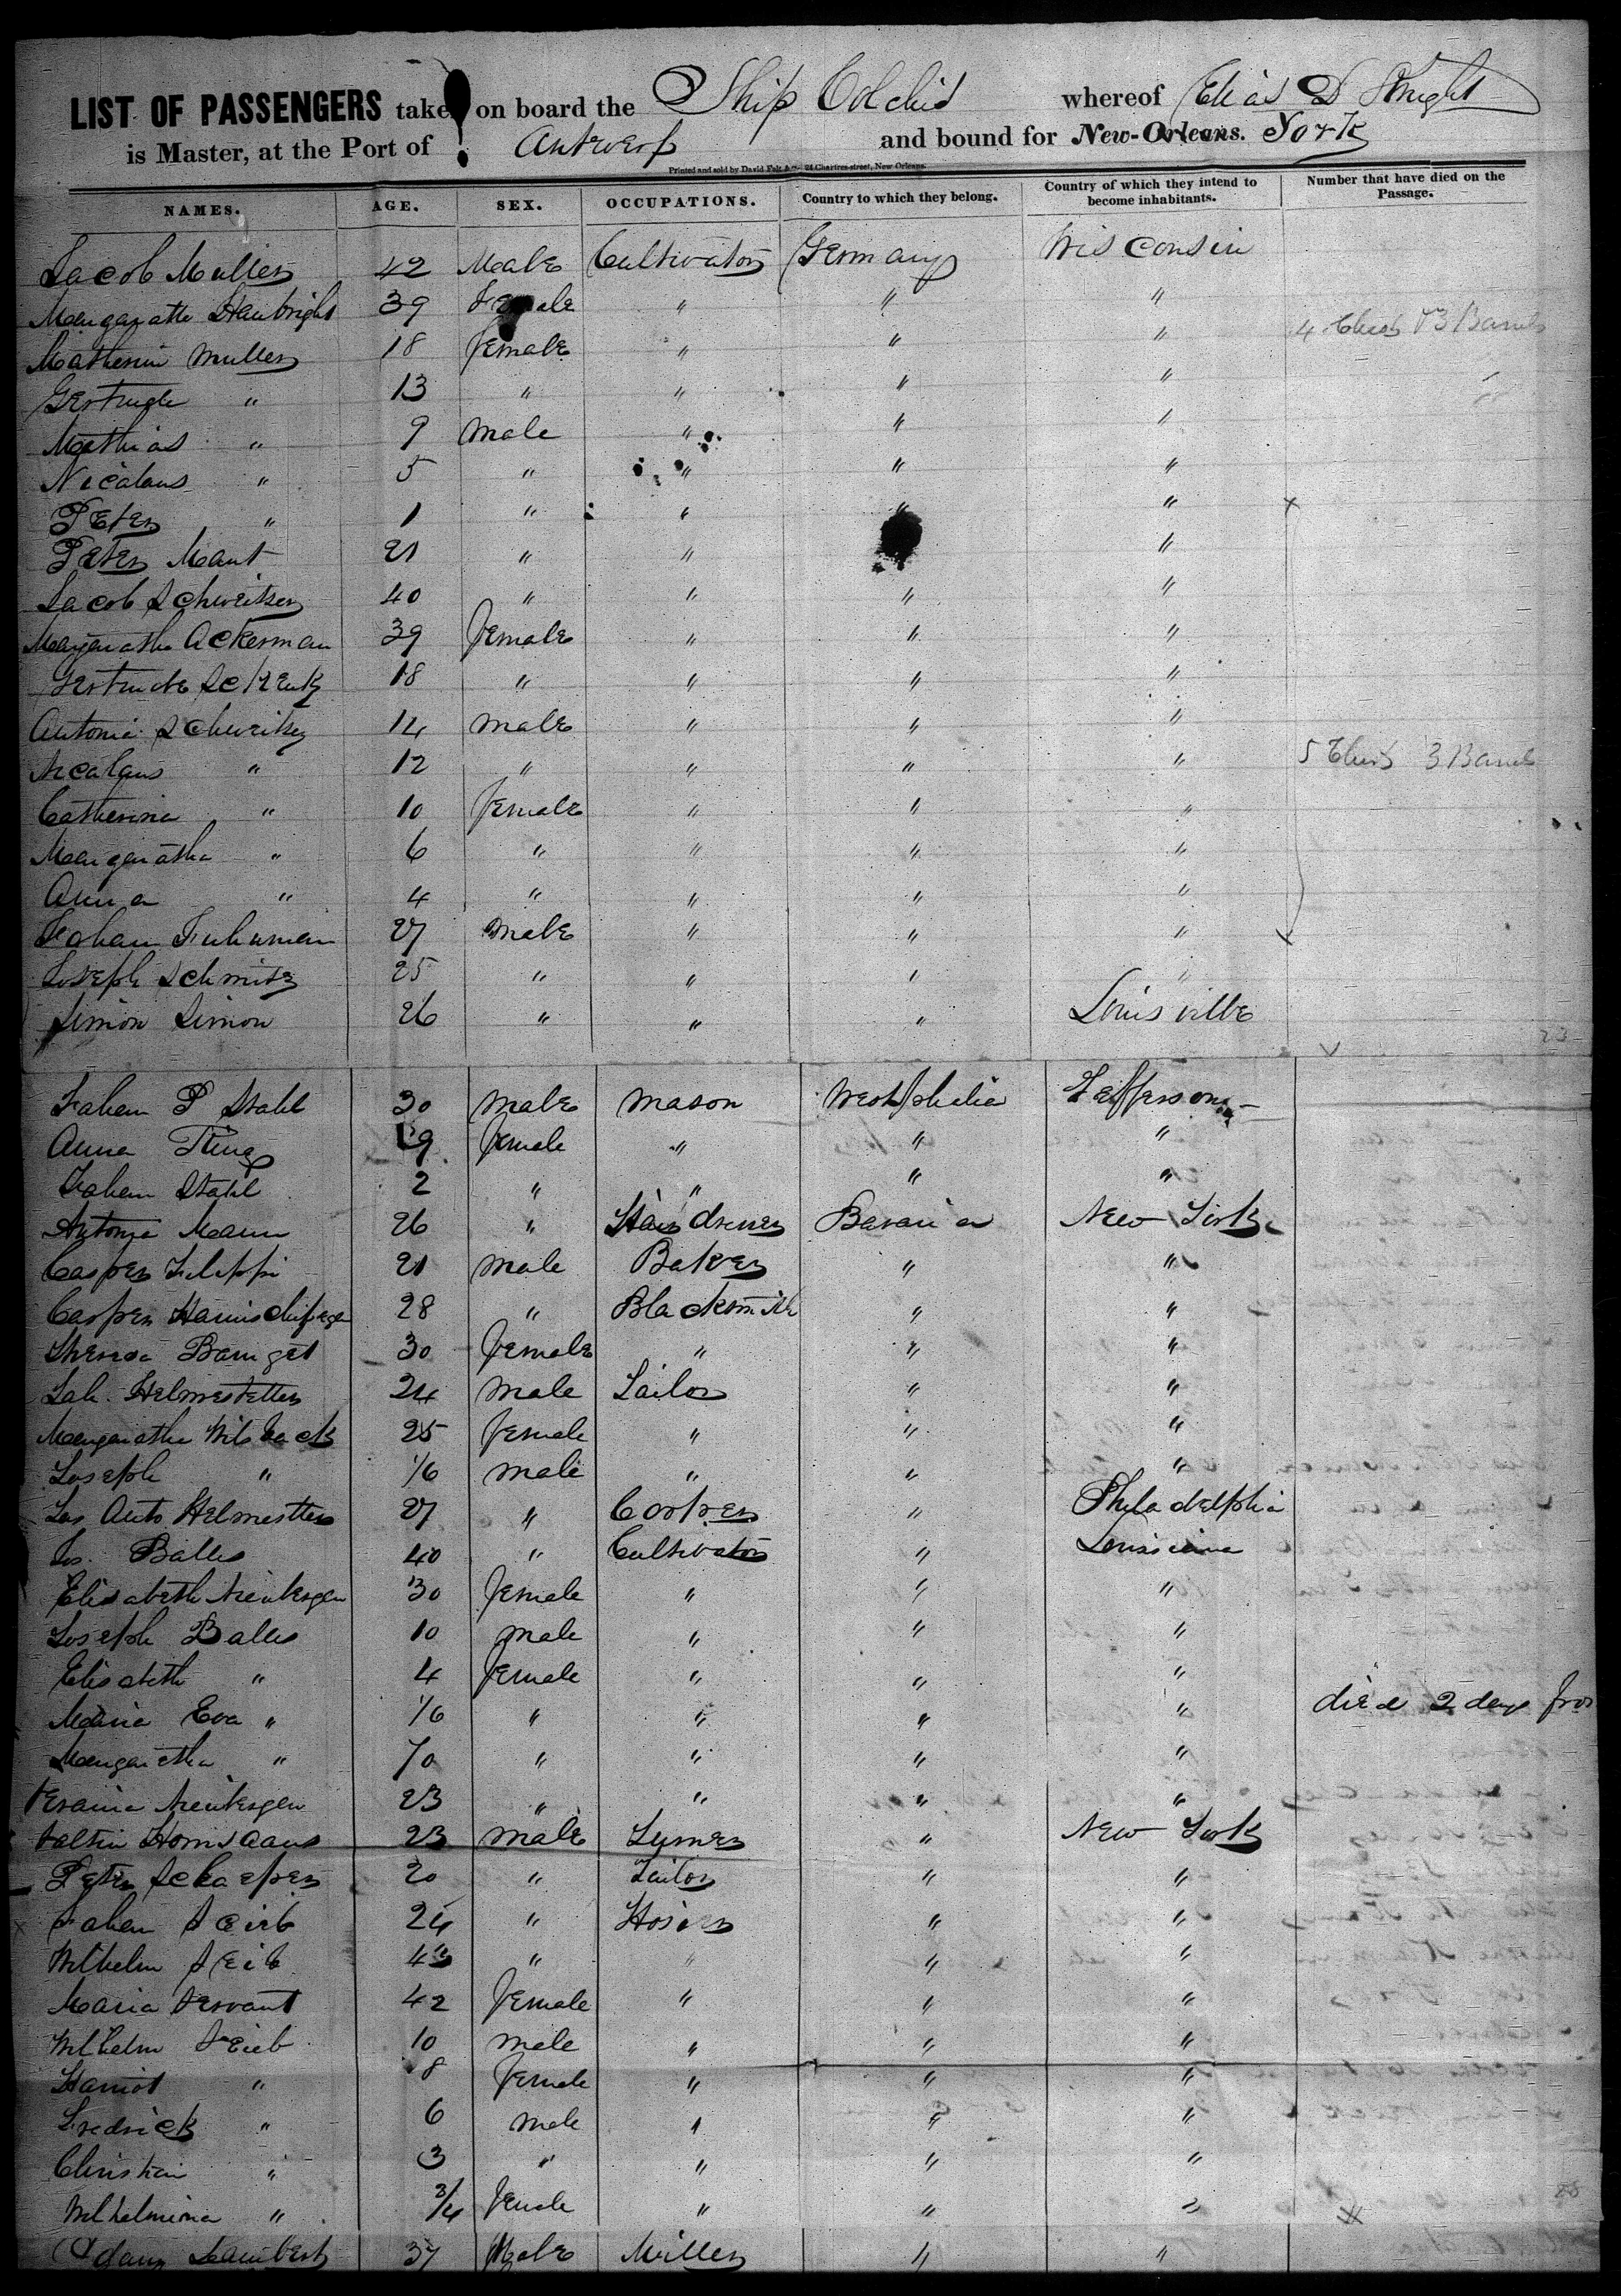 LIST OF PASSENGERS taken on board the Ship Colchis whereof Elias D Knight
is Master, at the Port of Antwerp and bound for New-Orleans. York
Printed and sold by David Felt & Co. 24 Chartres-street, New Orleans.
NAMES. AGE. SEX. OCCUPATIONS. Country to which they belong. Country of which they intend to become inhabitants. Number that have died on the Passage.
Jacob Muller 42 Male Cultivator Germany Wisconsin
Margaratha 39 Female " " "
Catherin Muller 18 female " " " 4 Chests 3 Barrels
Gertrude " 13 " " " "
Mathias " 9 male " " "
Nicalaus " 5 " " " "
Peter " 1 " " " "
Peter Mant 21 " " " "
Jacob Schweitzer 40 " " " "
Margaratha Ackerman 39 female " " "
Gertrude Schenk 18 " " " "
Antoni Schweitzer 14 male " " "
Nicalaus " 12 " " " " 5 Chests 3 Barrels
Catherina " 10 female " " "
Margaratha " 6 " " " "
Anna " 4 " " " "
Johan Fuhrman 27 male " " "
Joseph Schmitz 25 " " " "
Simon Simon 26 " " " Louisville
23
Johan P Stahl 30 male mason Westphalia Jefferson
Anna King 29 female " " "
Johan Stahl 2 " " " "
Antonia Mann 26 " Hairdresser Bavaria New York
Casper Filippi 21 male Baker " "
Casper 28 " Blacksmith " "
Theresa 30 female " " "
Joh. Helmestetter 24 male Tailor " "
Margaratha Wilback 25 female " " "
Joseph " 1/6 male " " "
Jos Anto Helmstetter 27 " Cooper " Philadelphia
Jos. Balles 40 " Cultivator " Louisiana
Elisabeth 30 female " " "
Joseph Balles 10 male " " "
Elisabeth " 4 female " " "
Maria Eva " 1/6 " " " " died 2 days from
Margaretha " 70 " " " "
23 " " " "
23 male " New York
Peter Schaefer 20 " Tailor " "
Johan Seib 24 " Hosier " "
Wilhelm Seib " " " "
Maria Servant 42 female " " "
Wilhelm Seib 10 male " " "
Harriot " 8 female " " "
Fredrick " 6 male " " "
Christian " 3 " " " "
Wilhelmina " 3/4 female " " "
28
Adam Lambert 37 Male Miller " "